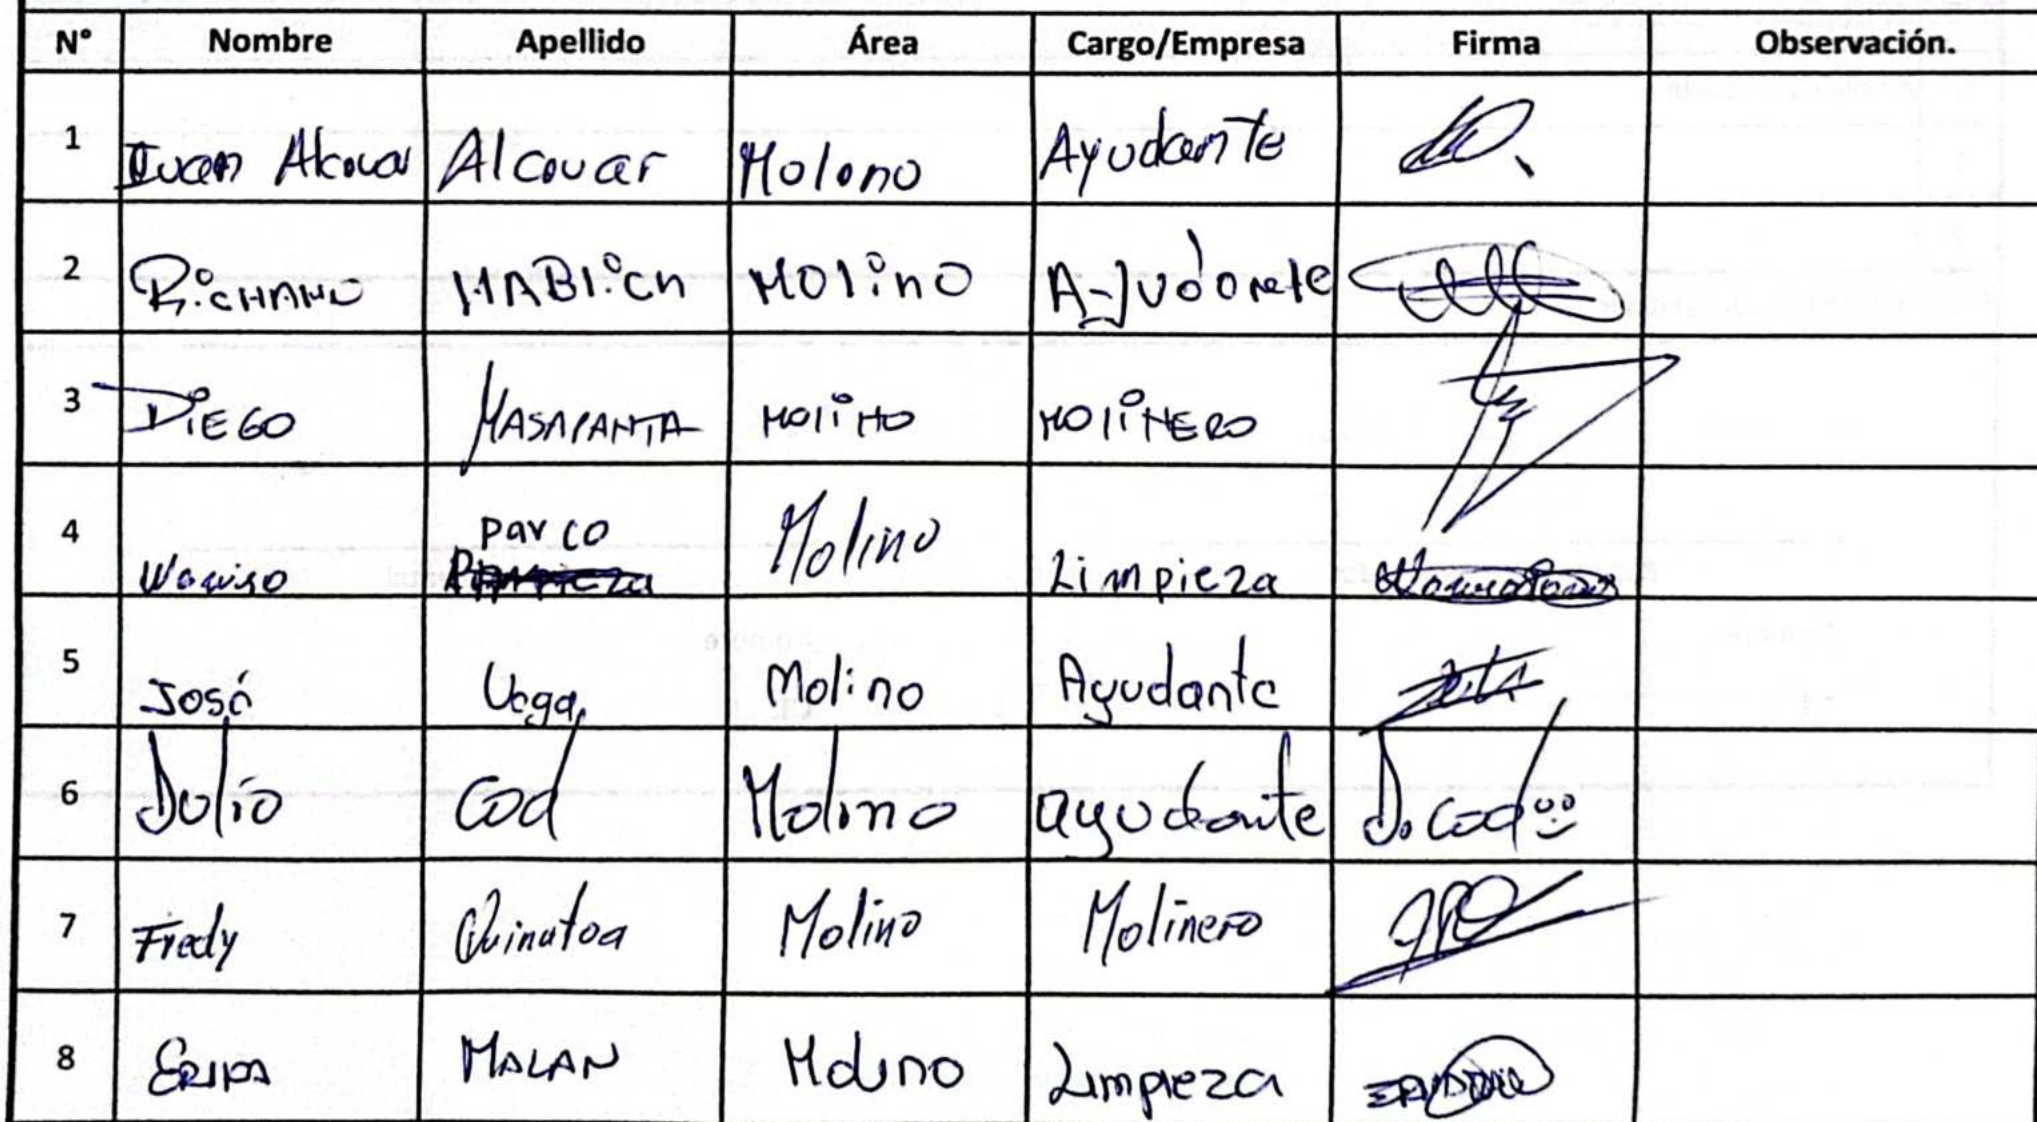 N° Nombre Apellido Área Cargo/Empresa Firma Observación.
1 Ivan Alcovar Alcovar Molono Ayudante
2 Richard MABlich Molino Ayudante
3 DiEGO MASAPANTA MOliNO MOliNERO
4 Parco Molino Limpieza
5 José Vega Molino Ayudante
6 Julio Cod Molino ayudante J. Cod
7 Fredy Quinatoa Molino Molinero
8 ERIKA MALAN Molino Limpieza